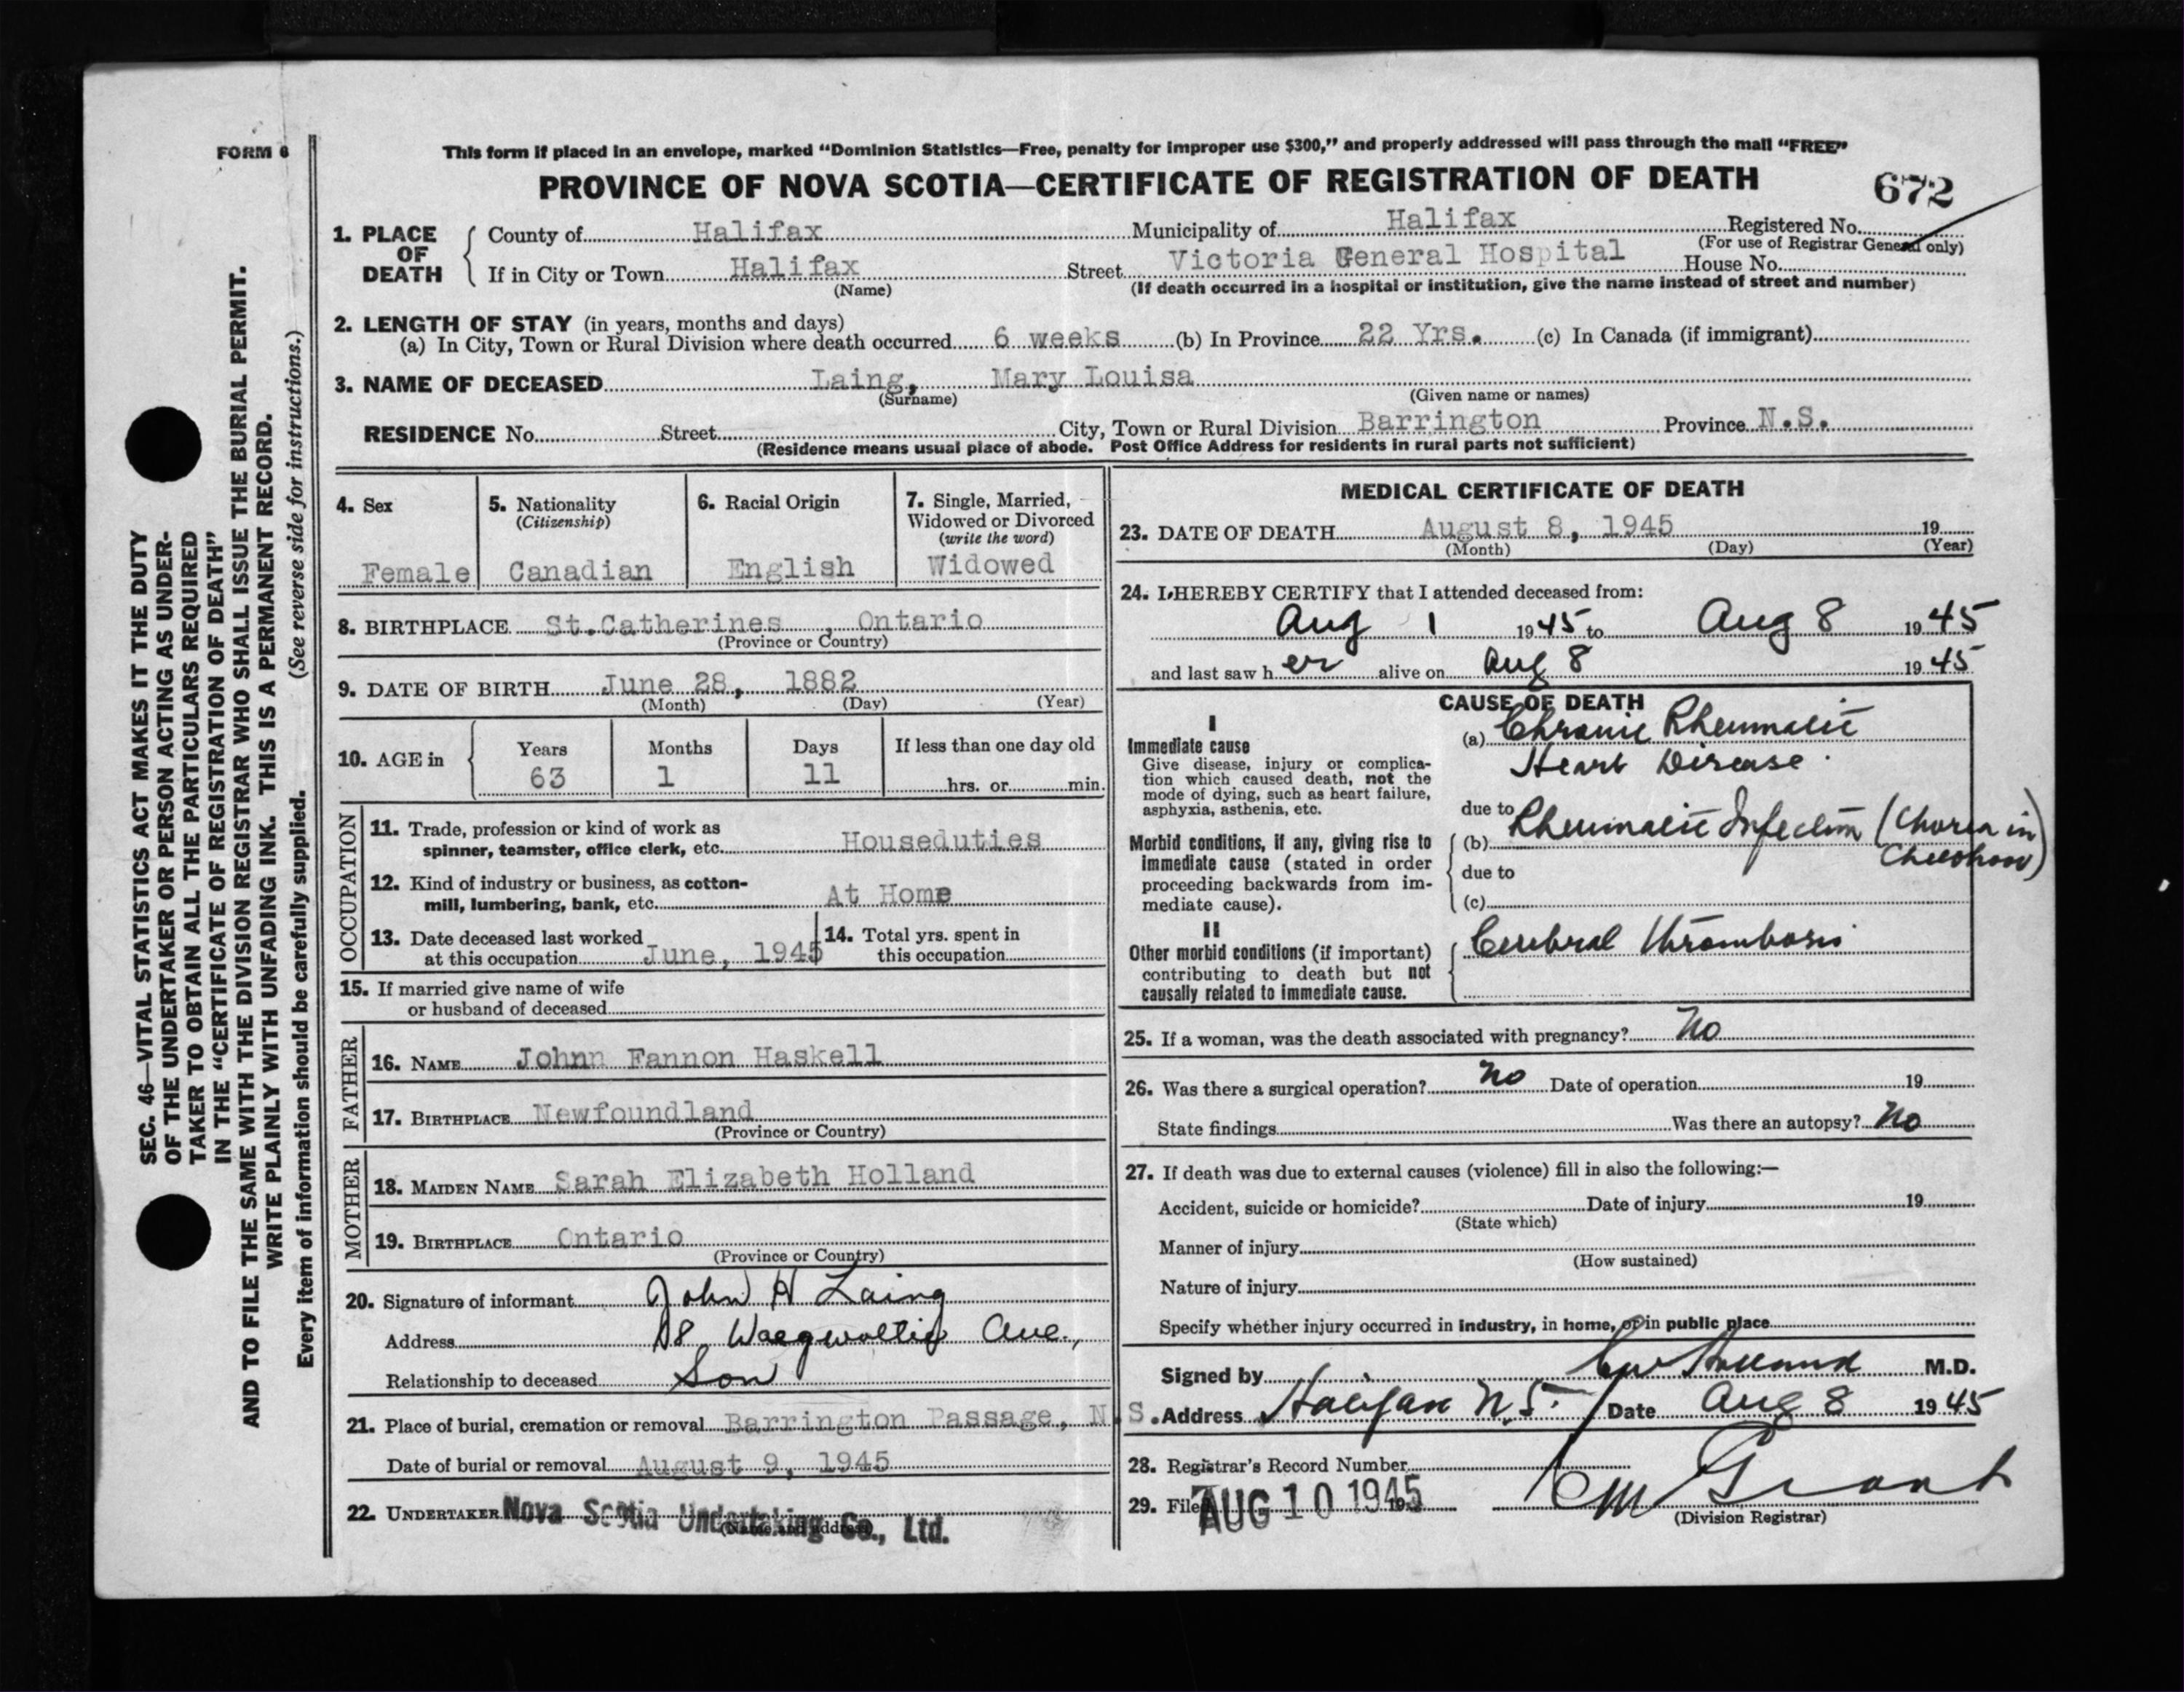 FORM 6
This form if placed in an envelope, marked "Dominion Statistics—Free, penalty for improper use $300," and properly addressed will pass through the mail "FREE"
PROVINCE OF NOVA SCOTIA—CERTIFICATE OF REGISTRATION OF DEATH
672
1. PLACE OF DEATH
County of Halifax Municipality of Halifax Registered No.
(For use of Registrar General only)
If in City or Town Halifax Street Victoria General Hospital House No.
(Name) (If death occurred in a hospital or institution, give the name instead of street and number)
2. LENGTH OF STAY (in years, months and days)
(a) In City, Town or Rural Division where death occurred 6 weeks (b) In Province 22 Yrs. (c) In Canada (if immigrant)
3. NAME OF DECEASED Laing, Mary Louisa
(Surname) (Given name or names)
RESIDENCE No. Street City, Town or Rural Division Barrington Province N.S.
(Residence means usual place of abode. Post Office Address for residents in rural parts not sufficient)
4. Sex
Female
5. Nationality
(Citizenship)
Canadian
6. Racial Origin
English
7. Single, Married,
Widowed or Divorced
(write the word)
Widowed
8. BIRTHPLACE St.Catherines , Ontario
(Province or Country)
9. DATE OF BIRTH June 28, 1882
(Month) (Day) (Year)
10. AGE in
Years Months Days If less than one day old
63 1 11 hrs. or min.
OCCUPATION
11. Trade, profession or kind of work as
spinner, teamster, office clerk, etc. Houseduties
12. Kind of industry or business, as cotton-
mill, lumbering, bank, etc. At Home
13. Date deceased last worked
at this occupation June, 1945
14. Total yrs. spent in
this occupation
15. If married give name of wife
or husband of deceased
FATHER
16. NAME Johnn Fannon Haskell
17. BIRTHPLACE Newfoundland
(Province or Country)
MOTHER
18. MAIDEN NAME Sarah Elizabeth Holland
19. BIRTHPLACE Ontario
(Province or Country)
20. Signature of informant John H Laing
Address 18 Ave.,
Relationship to deceased Son
21. Place of burial, cremation or removal Barrington Passage, N.S.
Date of burial or removal August 9, 1945
22. UNDERTAKER Nova Scotia Undertaking Co., Ltd.
(Name and address)
MEDICAL CERTIFICATE OF DEATH
23. DATE OF DEATH August 8, 1945 19
(Month) (Day) (Year)
24. I HEREBY CERTIFY that I attended deceased from:
Aug 1 1945 to Aug 8 1945
and last saw her alive on Aug 8 1945
CAUSE OF DEATH
I
Immediate cause
Give disease, injury or complica-
tion which caused death, not the
mode of dying, such as heart failure,
asphyxia, asthenia, etc.
(a) Chronic Rheumatic
Heart Disease.
due to
Morbid conditions, if any, giving rise to
immediate cause (stated in order
proceeding backwards from im-
mediate cause).
(b) Rheumatic Infection (Chorea in
Childhood)
due to
(c)
II
Other morbid conditions (if important)
contributing to death but not
causally related to immediate cause.
Cerebral Thrombosis
25. If a woman, was the death associated with pregnancy? No
26. Was there a surgical operation? No Date of operation 19
State findings Was there an autopsy? No
27. If death was due to external causes (violence) fill in also the following:—
Accident, suicide or homicide? Date of injury 19
(State which)
Manner of injury
(How sustained)
Nature of injury
Specify whether injury occurred in industry, in home, or in public place
Signed by M.D.
Address Halifax N.S. Date Aug 8 1945
28. Registrar's Record Number
29. Filed AUG 10 1945 19 Grant
(Division Registrar)
SEC. 46—VITAL STATISTICS ACT MAKES IT THE DUTY
OF THE UNDERTAKER OR PERSON ACTING AS UNDER-
TAKER TO OBTAIN ALL THE PARTICULARS REQUIRED
IN THE "CERTIFICATE OF REGISTRATION OF DEATH"
AND TO FILE THE SAME WITH THE DIVISION REGISTRAR WHO SHALL ISSUE THE BURIAL PERMIT.
WRITE PLAINLY WITH UNFADING INK. THIS IS A PERMANENT RECORD.
Every item of information should be carefully supplied. (See reverse side for instructions.)